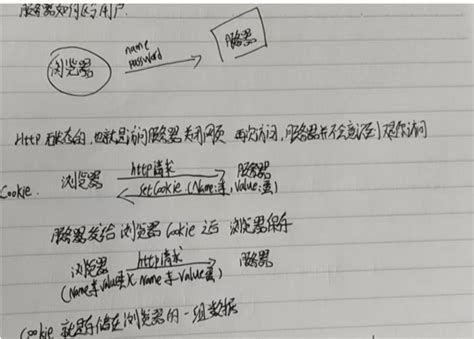 服务器如何区分用户.
浏览器 name password 服务器
Http 无状态的, 也就是访问服务器 关闭网页 再次访问, 服务器并不会意识到是你访问
http请求
Cookie. 浏览器 服务器
setCookie (Name:某, Value:某)
服务器发给 浏览器 Cookie 之后 浏览器保存
http请求
浏览器 服务器
(Name某 value某) ( Name某 Value某)
Cookie 就是存储在浏览器的一组数据